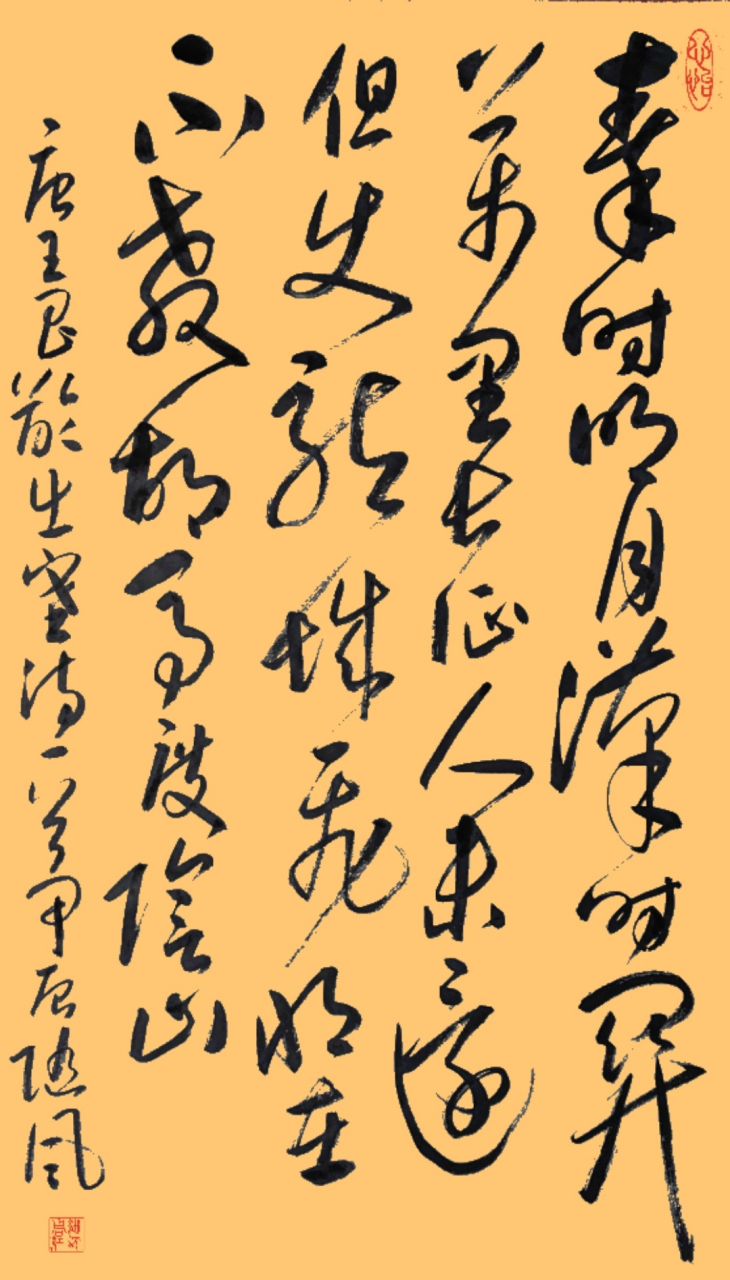 秦时明月漢时關
萬里长征人未還
但使龍城飛将在
不教胡馬度陰山
唐王昌龄出塞诗一首甲辰随風